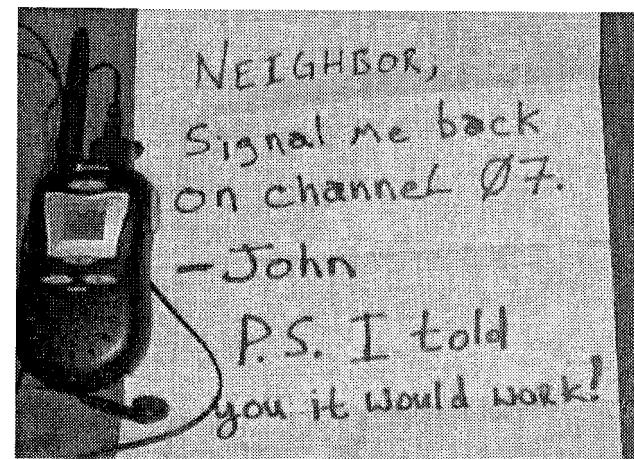 NEIGHBOR,
Signal me back
on channel Ø7.
-John
P.S. I told
you it would work!